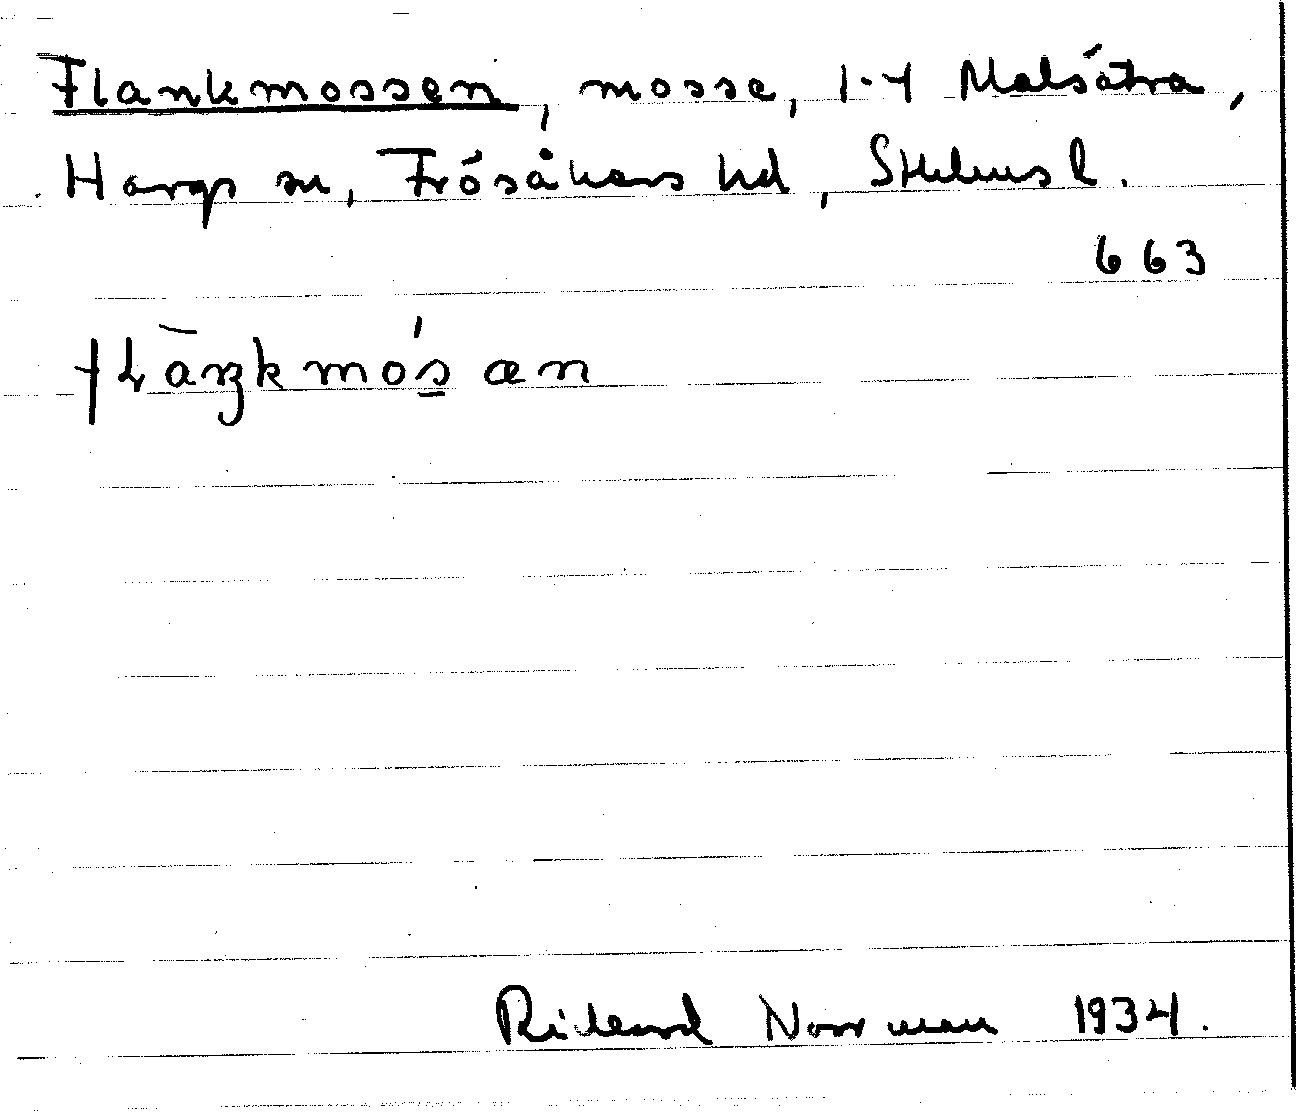 Flankmossen, mosse, 1-4 Malsätra,
Hargs sn, Frösåkers hd, Sthlms l.
663
flaŋkmósæn
Rickard Norrman 1934.